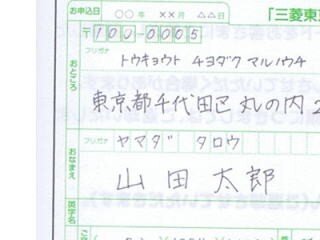 お申込日 ○○年 ××月 △△日 「三菱東
〒100-0005
フリガナ トウキョウト チヨダク マルノウチ
おところ 東京都千代田区丸の内2
フリガナ ヤマダ タロウ
おなまえ 山田 太郎
英字名